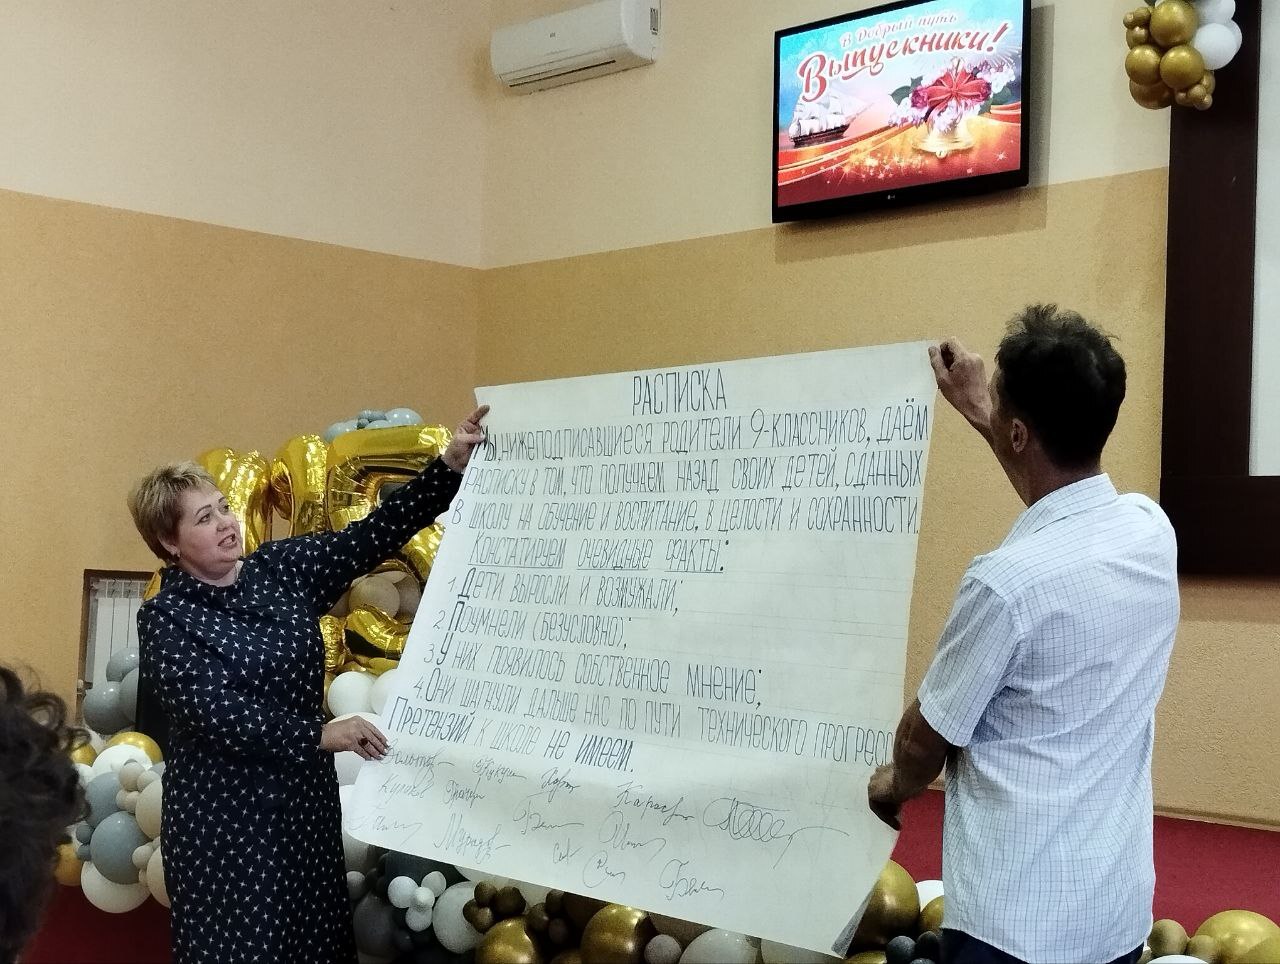 В Добрый путь
Выпускники!
РАСПИСКА
Мы, нижеподписавшиеся родители 9-классников, даём
расписку в том, что получаем назад своих детей, сданных
в школу на обучение и воспитание, в целости и сохранности.
Констатируем очевидные факты:
1. Дети выросли и возмужали;
2. Поумнели (безусловно);
3. У них появилось собственное мнение;
4. Они шагнули дальше нас по пути технического прогресс
Претензий к школе не имеем.
LG